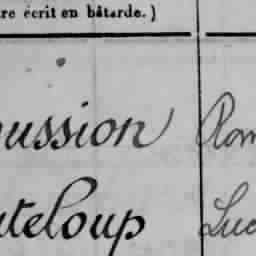 re écrit en bâtarde.)
ussion Rom
uteloup Luc